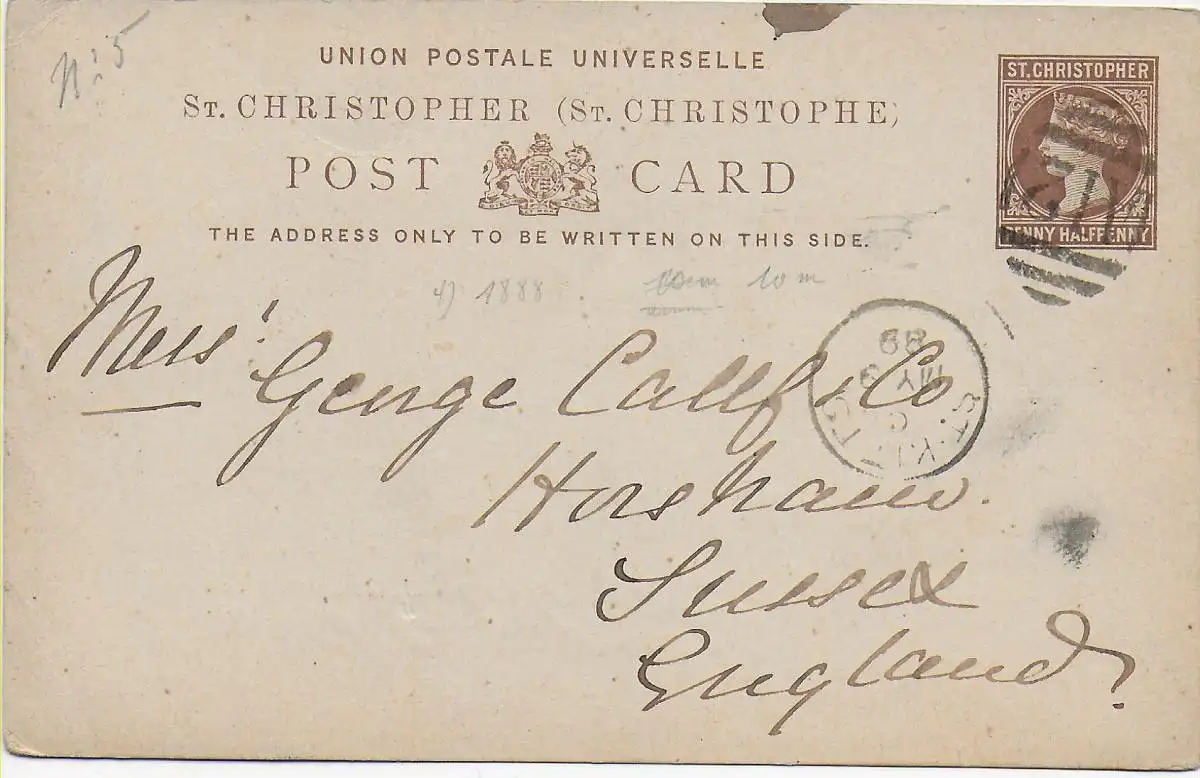 Nº 5
UNION POSTALE UNIVERSELLE
ST. CHRISTOPHER (ST. CHRISTOPHE)
POST CARD
THE ADDRESS ONLY TO BE WRITTEN ON THIS SIDE.
ST. CHRISTOPHER
PENNY HALFPENNY
4) 1888
10 m
Mess:
George & Co
Horsham.
Sussex
England
ST. KITTS
C
MY 3
89